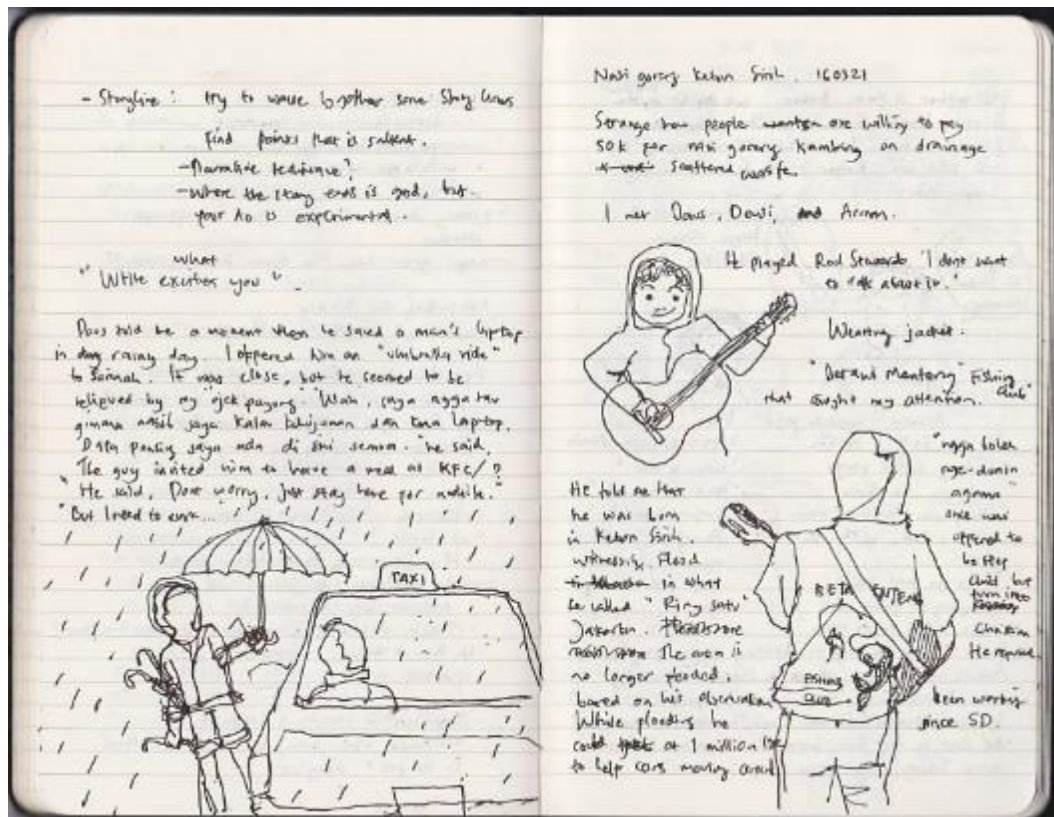 - Storyline : try to weave together some Story lines
Find points that is salient.
- Narrative technique?
- where the story ends is good, but
your Ao is experimental.
what
" While excites you " -
told me a moment when he saved a man's laptop
in rainy day. I offered him an "umbrella ride"
to Sarinah. It was close, but he seemed to be
relieved by my "ojek payung. "Wah, saya ngga tau
gimana nasib saya kalau kehujanan dan kena laptop.
Data penting saya ada di sini semua. he said.
The guy invited him to have a meal at KFC/?
" He said, Dont worry, just stay here for awhile."
"But I need to
TAXI
Nasi goreng Kebon Sirih . 160321
Strange how people are willing to pay
50k for nasi goreng kambing on drainage
scattered waste.
I met Daus, Dawi, and
He played Rod Stewards "I dont want
to talk about it."
Wearing jacket.
Menteng" Fishing
Club"
that caught my attention.
"ngga boleh
nge-dunin
agama"
once was
offered to
be step
child but
turn into
Christian
He refused.
He told me that
he was born
in Kebon Sirih.
witnessing Flood
in what
he called "Ring satu"
Jakarta.
The area is
no longer flooded,
based on his observation
While flooding he
could at 1 million
to help cars moving around
BETA ENTENG
FISHING
CLUB
been working
since SD.